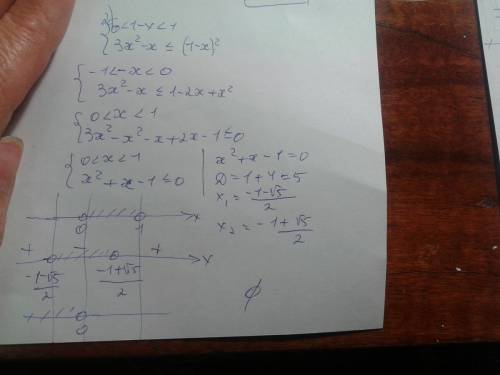 2) { 0<1-x<1
3x²-x ≤ (1-x)²
{ -1<-x<0
3x²-x ≤ 1-2x+x²
{ 0<x<1
3x²-x²-x+2x-1≤0
{ 0<x<1
x²+x-1≤0
x²+x-1=0
D=1+4=5
x₁=(-1-√5)/2
x₂=(-1+√5)/2
0 1 x
+ - + x
(-1-√5)/2 (-1+√5)/2
0
∅